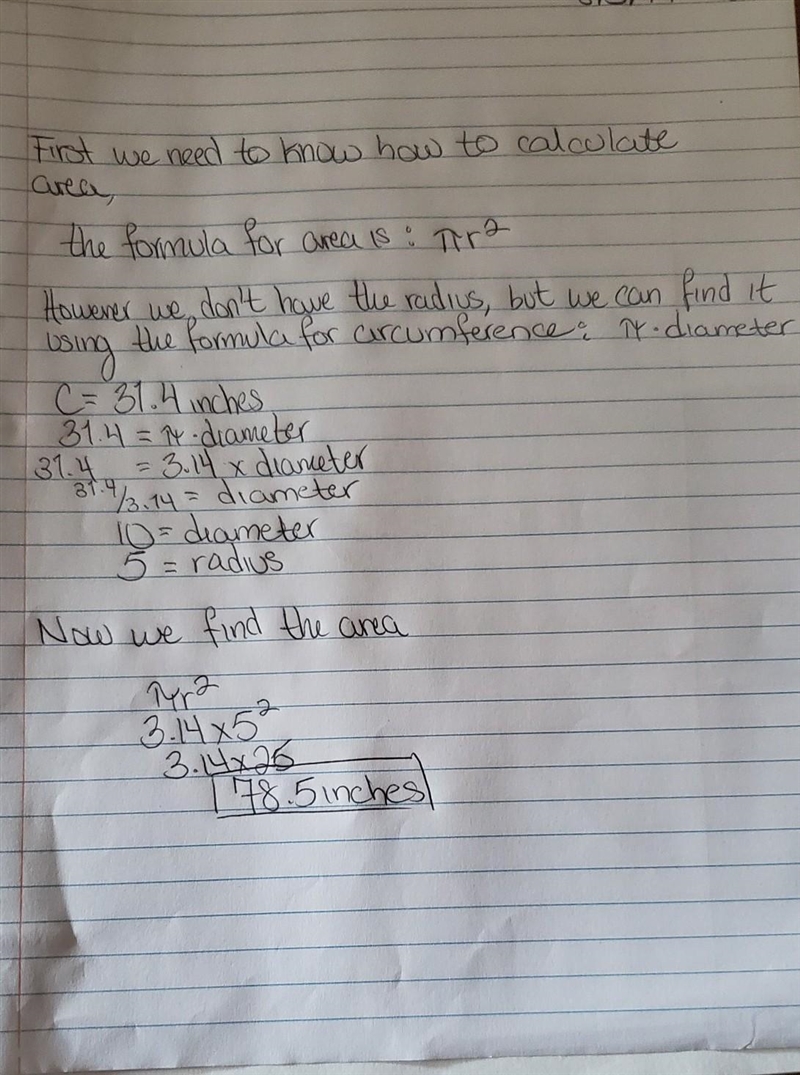 First we need to know how to calculate
area,
the formula for area is: πr²
However we don't have the radius, but we can find it
using the formula for circumference: π·diameter
C= 31.4 inches
31.4 = π·diameter
31.4 = 3.14 x diameter
31.4/3.14 = diameter
10 = diameter
5 = radius
Now we find the area
πr²
3.14 x 5²
3.14 x 25
78.5 inches